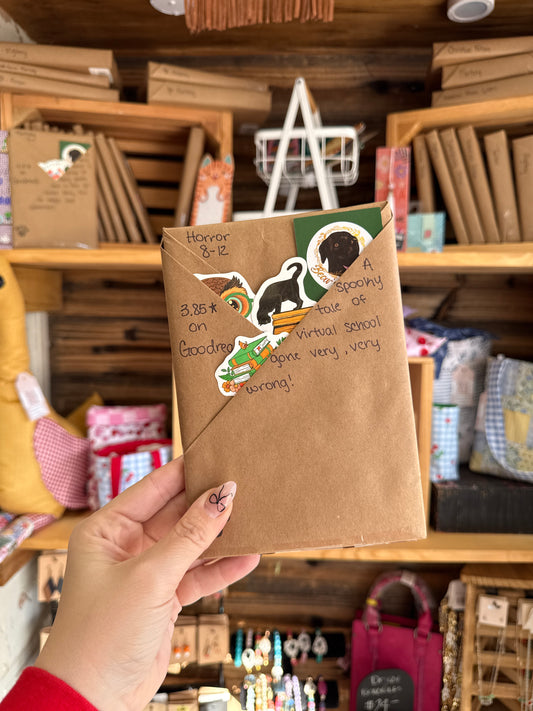 Horror
8-12
3.85★
on
Goodrea
A
spooky
tale of
virtual school
gone very, very
wrong!